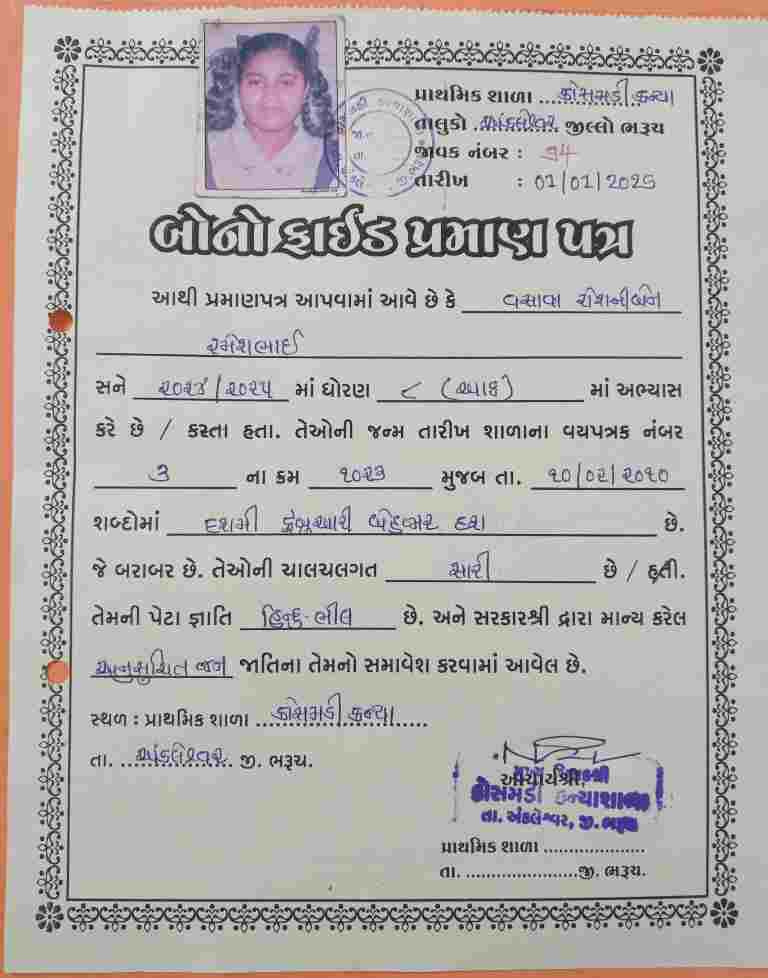 પ્રાથમિક શાળા કોસમડી કન્યા
તાલુકો અંકલેશ્વર જીલ્લો ભરૂચ
જાવક નંબર : ૭૪
તારીખ : 01/01/2025
બોનોફાઈડ પ્રમાણ પત્ર
આથી પ્રમાણપત્ર આપવામાં આવે છે કે વસાવા રોશનીબેન
રમેશભાઈ
સને ૨૦૨૪/૨૦૨૫ માં ધોરણ ૮ (આઠ) માં અભ્યાસ
કરે છે / કરતા હતા. તેઓની જન્મ તારીખ શાળાના વયપત્રક નંબર
૩ ના ક્રમ ૧૦૨૩ મુજબ તા. ૧૦/૦૨/૨૦૧૦
શબ્દોમાં દશમી ફેબ્રુઆરી બેહજાર દશ છે.
જે બરાબર છે. તેઓની ચાલચલગત સારી છે / હતી.
તેમની પેટા જ્ઞાતિ હિન્દુ-ભીલ છે. અને સરકારશ્રી દ્વારા માન્ય કરેલ
અનુસુચિત જન જાતિના તેમનો સમાવેશ કરવામાં આવેલ છે.
સ્થળ : પ્રાથમિક શાળા કોસમડી કન્યા
તા. અંકલેશ્વર જી. ભરૂચ.
આચાર્યશ્રી,
કોસમડી કન્યાશાળા
તા. અંકલેશ્વર, જી. ભરૂચ
પ્રાથમિક શાળા ....................
તા. ......................જી. ભરૂચ.